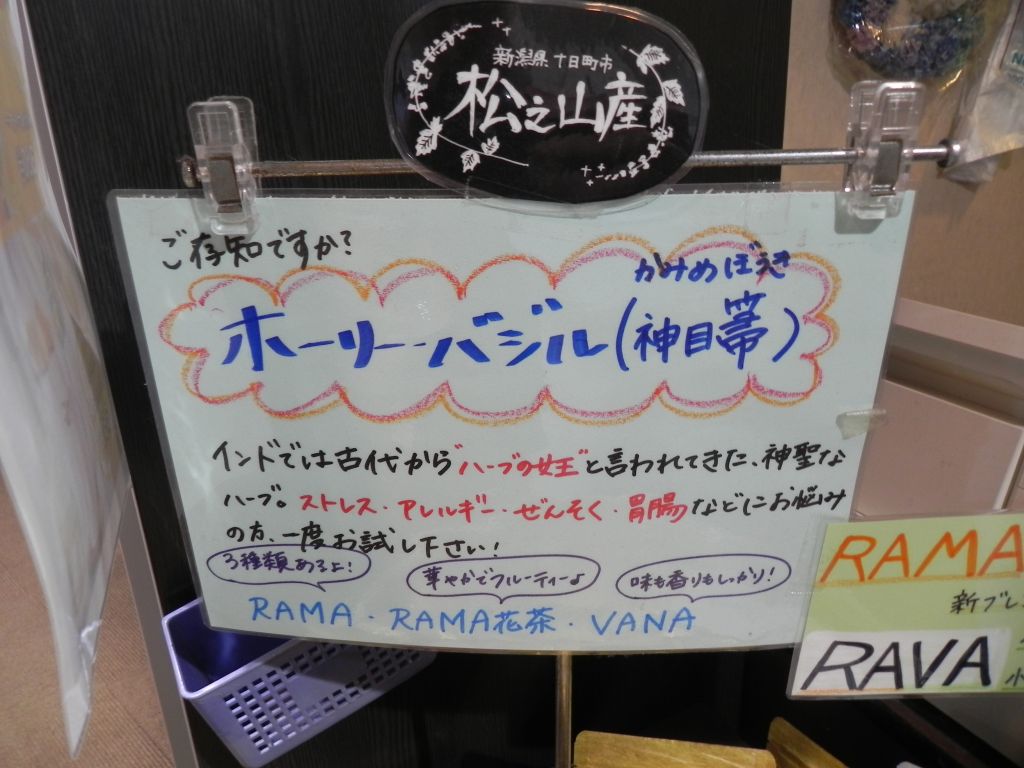 新潟県 十日町市
松之山産
ご存知ですか?
かみめぼうき
ホーリーバジル(神目箒)
インドでは古代から"ハーブの女王"と言われてきた、神聖な
ハーブ。ストレス・アレルギー・ぜんそく・胃腸などにお悩み
の方、一度お試し下さい!
3種類あるよ!
華やかでフルーティーよ
味も香りもしっかり!
RAMA・RAMA花茶・VANA
RAMA
新ブレ
RAVA